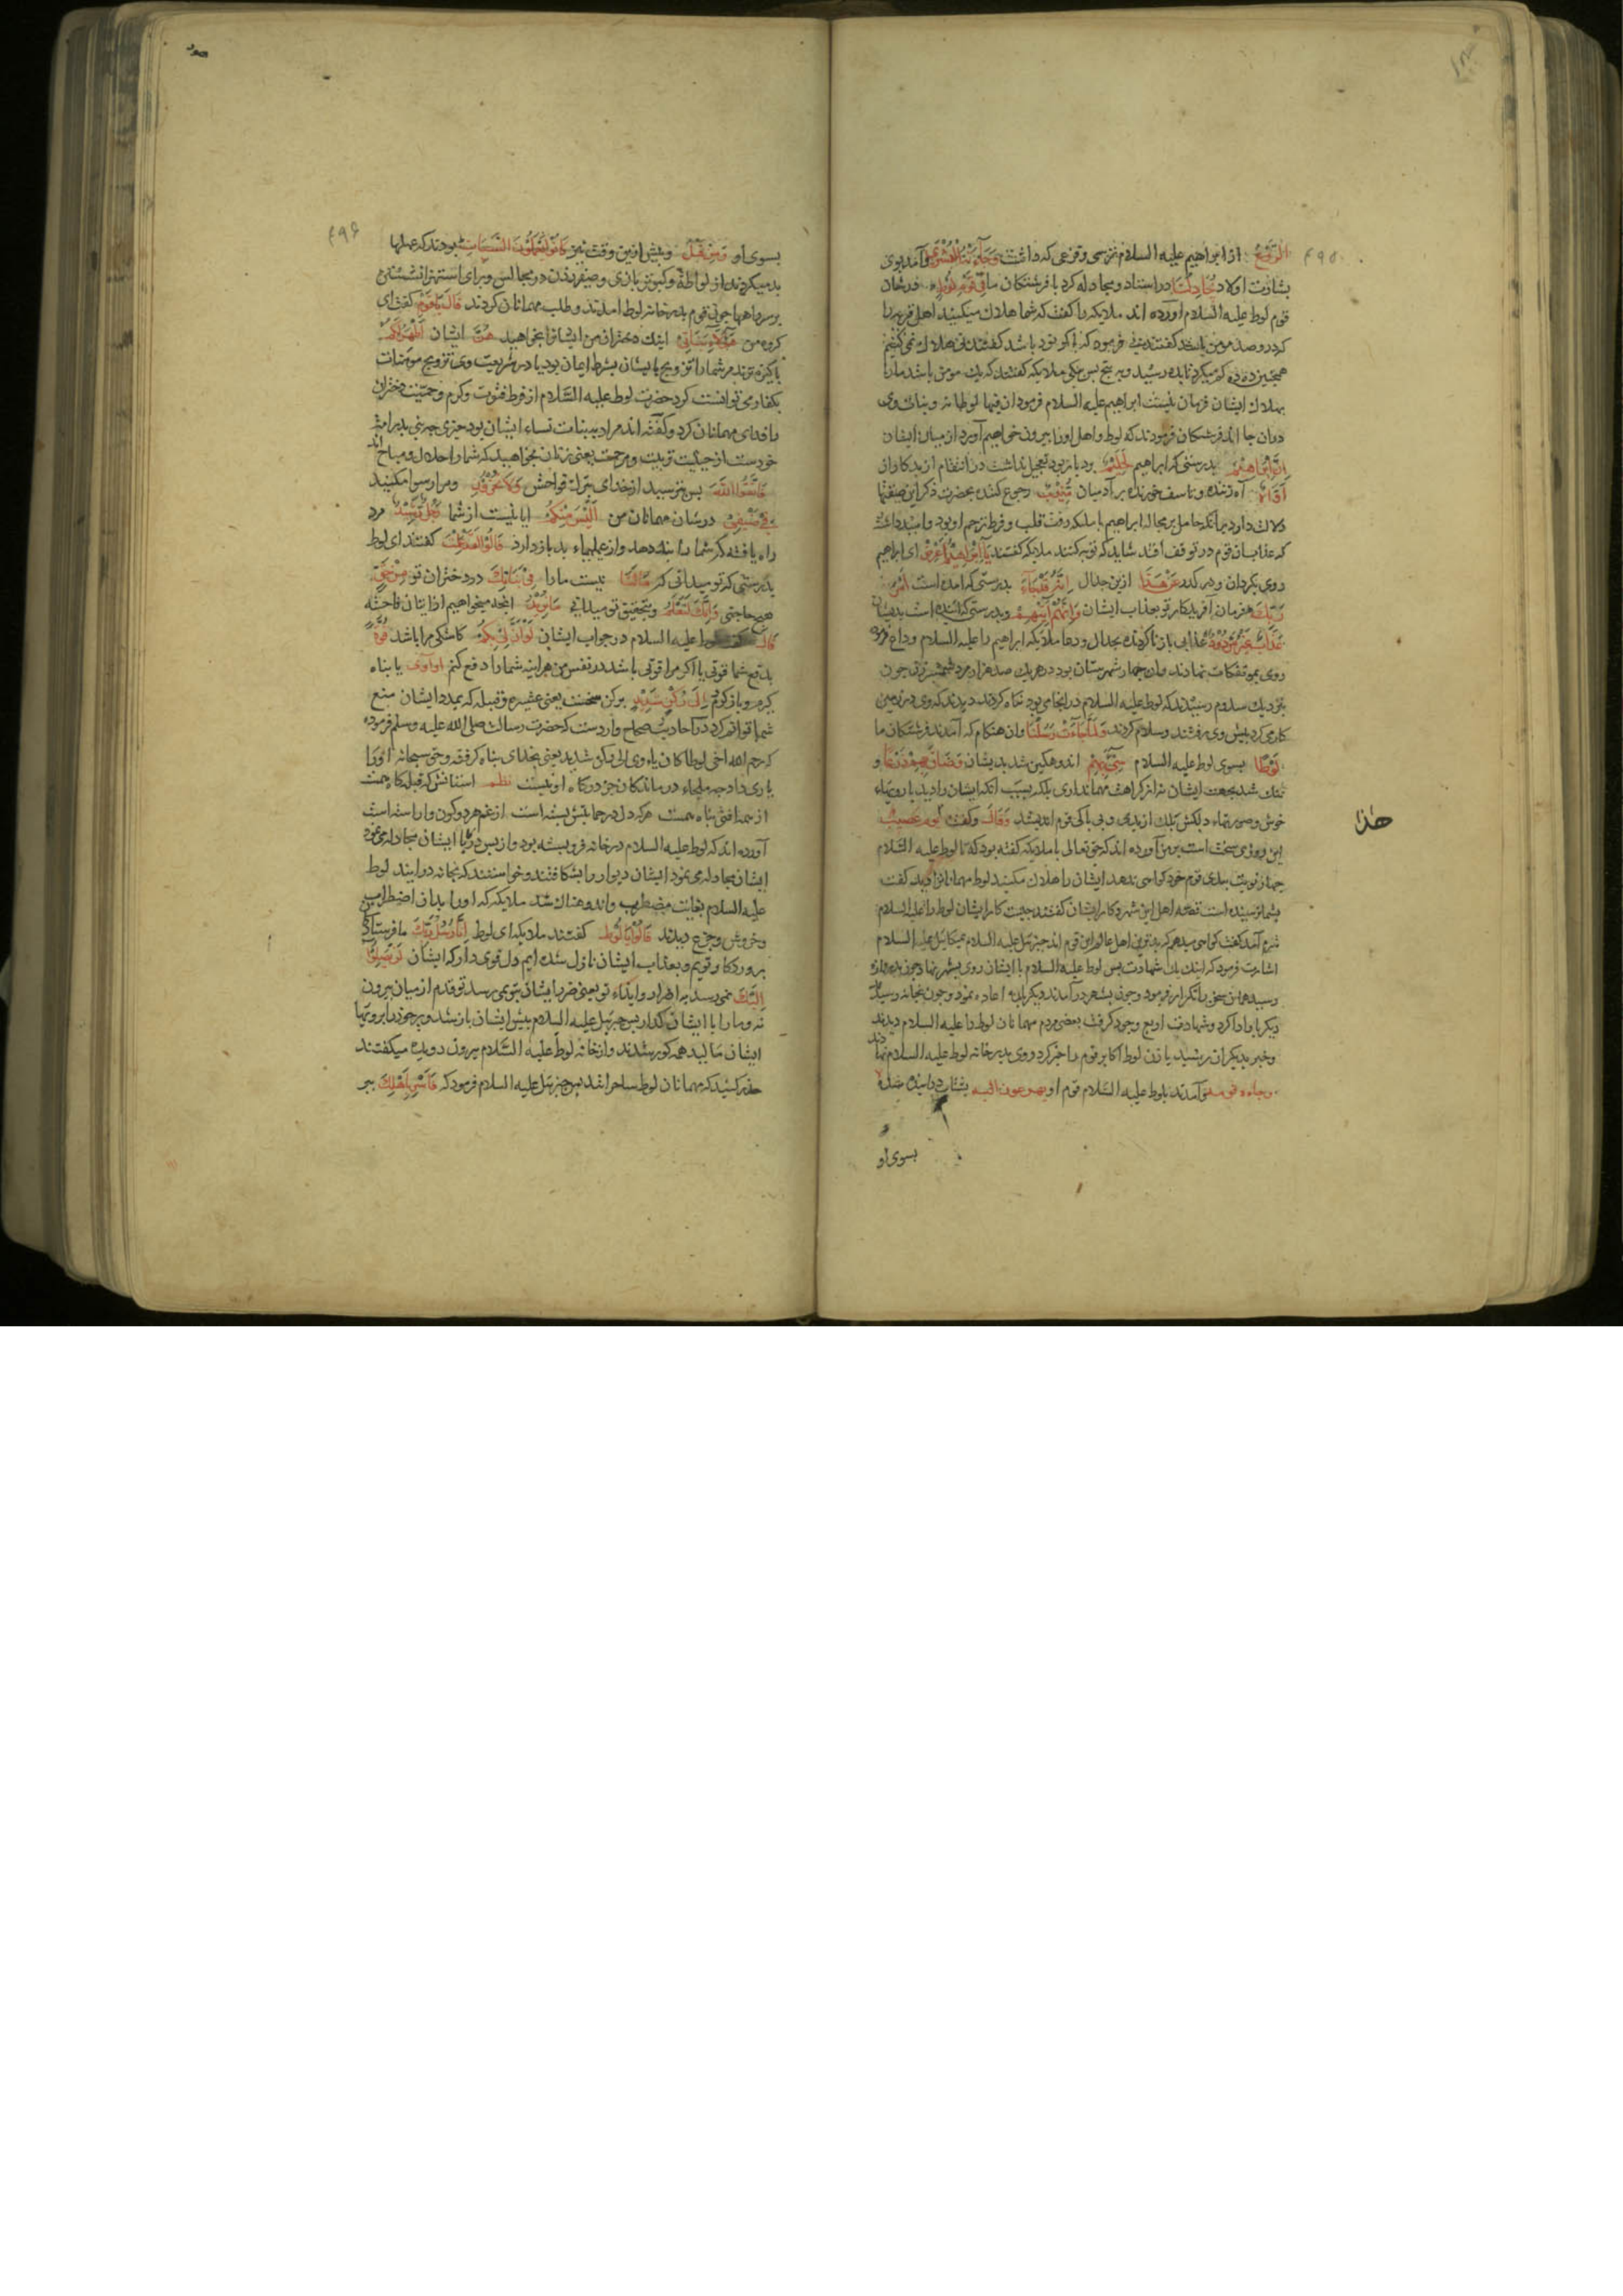 الرَّوْعُ از ابراهیم علیه السلام ترسی وفزعی که داشت وَجَآءَتْهُ الْبُشْرَى وآمد بوی
بشارت اولاد يُجَادِلُنَا در استاد ومجادله کرد با فرشتکان ما فِى قَوْمِ لُوطٍ درشان
قوم لوط علیه السلام آورده اند ملایکه را کفت که شما هلاک میکنید اهل قریه را
که درو صد مومن باشد کفتند نی فرمود که اکر نود باشد کفتند نی هلاک نمی کنیم
همچنین ده ده کم میکرد تا بده رسید وبه پنج پس بیکی ملایکه کفتند که یک مومن باشد ما را
بهلاک ایشان فرمان نیست ابراهیم علیه السلام فرمود ان فیها لوطا
دران جا اند فرشتکان فرمودند که لوط واهل اورا بیرون خواهیم آورد از میان ایشان
إِنَّ إِبْرَاهِيمَ بدرستی که ابراهیم لَحَلِيمٌ بود بابردبود تعجیل نداشت در انتقام از بدکاران
أَوَّاهٌ آه زننده وتاسف خورنده بر آدمیان مُّنِيبٌ رجوع کننده بحضرت ذکر این صفتها
دلالت دارد برآنکه حامل بر مجادله ابراهیم با ملایکه رقت قلب وفرط ترحم او بود وامید داشت
که عذاب ان قوم در توقف افتد شاید که توبه کنند ملایکه کفتند يَآ إِبْرَاهِيمُ أَعْرِضْ ای ابراهیم
روی بکردان ودر کذر عَنْ هَذَا ازین جدال إِنَّهُ قَدْ جَآءَ بدرستی که امده است أَمْرُ
رَبِّكَ فرمان آفریدکار تو بعذاب ایشان وَإِنَّهُمْ آتِيهِمْ وبدرستی که آینده است بدیشان
عَذَابٌ غَيْرُ مَرْدُودٍ عذابی باز ناکردنده بجدال ودعا ملایکه ابراهیم را علیه السلام وداع
روی بموتفکات نهادند وان چهار شهرستان بود در هریک صد هزار مرد شمشیر زن چون
بنزدیک سدوم رسیدند که لوط علیه السلام در انجا می بود نکاه کردند دیدند که وی در زمین
کار می کرد پیش وی رفتند وسلام کردند وَلَمَّا جَآءَتْ رُسُلُنَا وان هنکام که آمدند فرشتکان ما
لُوطًا بسوی لوط علیه السلام سِىءَ بِهِمْ اندوهکین شد بدیشان وَضَاقَ بِهِمْ ذَرْعًا و
تنک شد بجهت ایشان نه از کراهت مهمانداری بلکه بسبب آنکه ایشان را دید با رویهاء
خوش وصورتهاء دلکش بلک از بدی وبی باکی قوم اندیشد وَقَالَ وکفت يَوْمٌ عَصِيبٌ
این روزی سخت است بر من آورده اند که حق تعالی با ملایکه کفته بود که تا لوط علیه السلام
چهار نوبت ببدی قوم خود کواهی ندهد ایشان را هلاک مکنید لوط مهمانانرا دید کفت
بشما نرسیده است قصه اهل این شهر وکار ایشان کفتند چیست کار ایشان لوط را علیه السلام
شرم آمد کفت کواهی میدهم که بدترین اهل عالم این قوم اند جبرئیل علیه السلام بمیکائیل علیه السلام
اشارت فرمود که اینک یک شهادت پس لوط علیه السلام با ایشان روی بشهر نهاد وچون بدروازه
رسید همان سخن را تکرار فرمود وچون بشهر در آمدند دیکر باره اعاده نمود وچون بخانه رسید
دیکر بار ادا کرد وشهادت اربع وجود کرفت بعضی مردم مهمانان لوط را علیه السلام دیدند
وخبر بدیکران رسید یا زن لوط اکابر قوم را خبر کرد روی بدر خانه لوط علیه السلام نهادند
وجاءه قومه وآمدند بلوط علیه السلام قوم او یهرعون الیه بشتاب
بسوی او
هذا
۴۹۵
بسوی او وَمِن قَبْلُ وپیش ازین وقت نیز كَانُوا يَعْمَلُونَ السَّيِّئَاتِ بودند که عملها
بد میکردند از لواطه وکبوتر بازی وصفیر زدن در مجالس وبرای استهزا نشستن
بر سر راهها چون قوم بدر خانه لوط امدند وطلب مهمانان کردند قَالَ يَا قَوْمِ کفت ای
کروه من هَؤُلآءِ بَنَاتِى اینک دختران من ایشانرا بخواهید هُنَّ ایشان أَطْهَرُ لَكُمْ
پاکیزه ترند مر شما را تزویج با ایشان بشرط ایمان بود یا در شریعت وی تزویج مومنات
بکفار می توانست کرد حضرت لوط علیه السلام از فرط فتوت وکرم وحمیت دختران
را فدای مهمانان کرد وکفته اند مراد به بنات نساء ایشان بود چه هر نبی پدر امت
خودست از حیثیت تربیت ومرحمت یعنی زنان بخواهید که شما را حلال ومباح اند
فَاتَّقُوا اللهَ پس بترسید از خدای بترک فواحش وَلَا تُخْزُونِ ومرا رسوا مکنید
فِى ضَيْفِى درشان مهمانان من أَلَيْسَ مِنكُمْ ایا نیست از شما رَجُلٌ رَّشِيدٌ مرد
راه یافته که شما را پند دهد واز عملهاء بد باز دارد قَالُوا لَقَدْ عَلِمْتَ کفتند ای لوط
بدرستی که تو میدانی که مَا لَنَا نیست ما را فِى بَنَاتِكَ در دختران تو مِنْ حَقٍّ
هیچ حاجتی وَإِنَّكَ لَتَعْلَمُ وبتحقیق تو میدانی مَا نُرِيدُ انچه میخواهیم از اتیان فاحشه
قَالَ کفت لوط علیه السلام در جواب ایشان لَوْ أَنَّ لِى بِكُمْ کاشکی مرا باشد قُوَّةً
بدفع شما قوتی یا اکر مرا قوتی باشد در نفس من هراینه شما را دفع کنم أَوْ آوِى یا پناه
کیرم وباز کردم إِلَى رُكْنٍ شَدِيدٍ برکن سخت یعنی عشیره وقبیله که بمدد ایشان منع
شما توانم کرد در احادیث صحاح وارد ست که حضرت رسالت صلی الله علیه وسلم فرموده
که رحم الله اخی لوطا کان یاوی الی رکن شدید یعنی بخدای پناه کرفته وحق سبحانه اورا
یاری داد چه ملجاء درماندکان جز درکاه او نیست نظم استانش که قبله کاه همست
از همه افتی پناه همست هرکه دل در حمایتش بسته است از غم هر دو کون وارسته است
آورده اند که لوط علیه السلام در خانه فرو بسته بود واز پس در با ایشان مجادله می نمود
ایشان مجادله می نمود ایشان دیوار را بشکافتند وخواستند که بخانه درایند لوط
علیه السلام بغایت مضطرب واندوهناک شد ملایکه که اورا بدان اضطراب
وخروش وجزع دیدند قَالُوا يَا لُوطُ کفتند ملایکه ای لوط إِنَّا رُسُلُ رَبِّكَ ما فرستادکان
پروردکار توییم وبعذاب ایشان نازل شده ایم دل قوی دار که ایشان لَن يَصِلُوا
إِلَيْكَ نمی رسند به اضرار وایذاء تو یعنی ضرر ایشان بتو نمی رسد تو قدم از میان بیرون
نه وما را با ایشان کذار پس جبرئیل علیه السلام پیش ایشان باز شد وپر خود را بر رویها
ایشان مالید همه کور شدند واز خانه لوط علیه السلام بیرون دویده میکفتند
حذر کنید که مهمانان لوط ساحر اند پس جبرئیل علیه السلام فرمود که فَأَسْرِ بِأَهْلِكَ ببر
۴۹۶